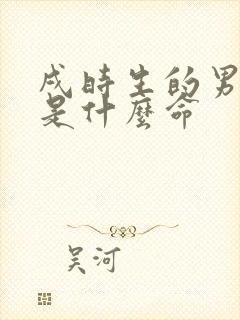 戌時生的男
是什麼命
吴河